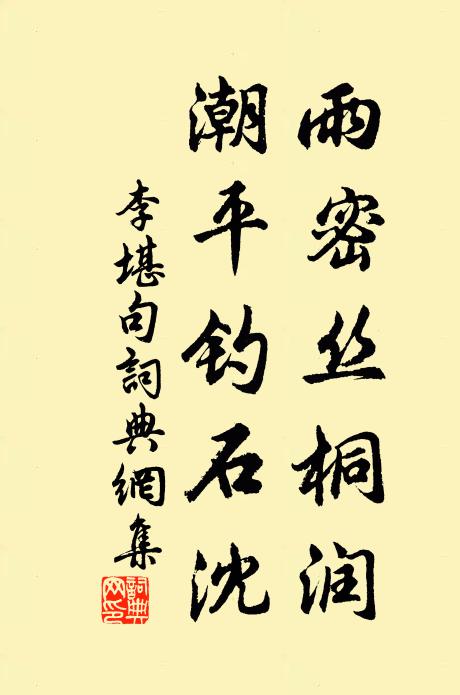 雨密丝桐润
潮平钓石沈
李堪句詞典網集
詞典网印